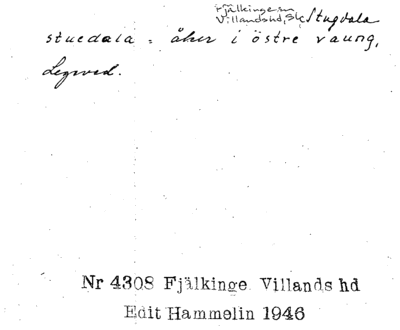 Fjälkinge sn
Villands hd, Sk. Stugdala
stuedala = åker i östre vaung,
Legeved.
Nr 4308 Fjälkinge Villands hd
Edit Hammelin 1946